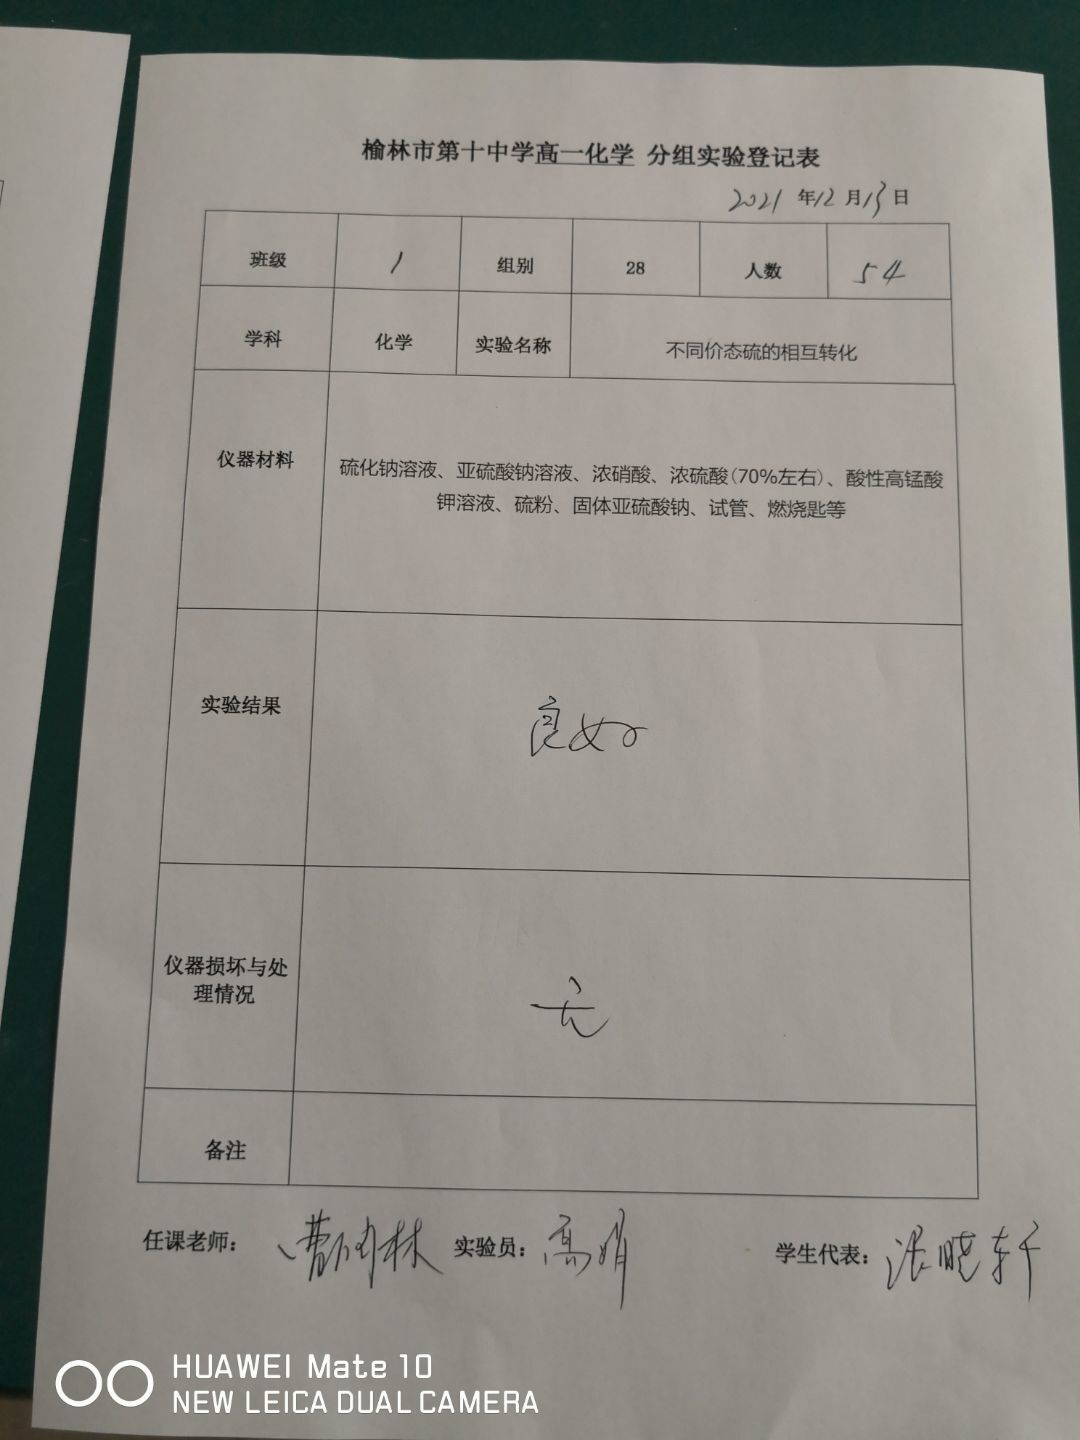 榆林市第十中学高一化学 分组实验登记表
2021 年12 月13日
班级 1 组别 28 人数 54
学科 化学 实验名称 不同价态硫的相互转化
仪器材料
硫化钠溶液、亚硫酸钠溶液、浓硝酸、浓硫酸(70%左右)、酸性高锰酸
钾溶液、硫粉、固体亚硫酸钠、试管、燃烧匙等
实验结果 良好
仪器损坏与处
理情况
无
备注
任课老师: 实验员: 高娟 学生代表: 张晓轩
HUAWEI Mate 10
NEW LEICA DUAL CAMERA